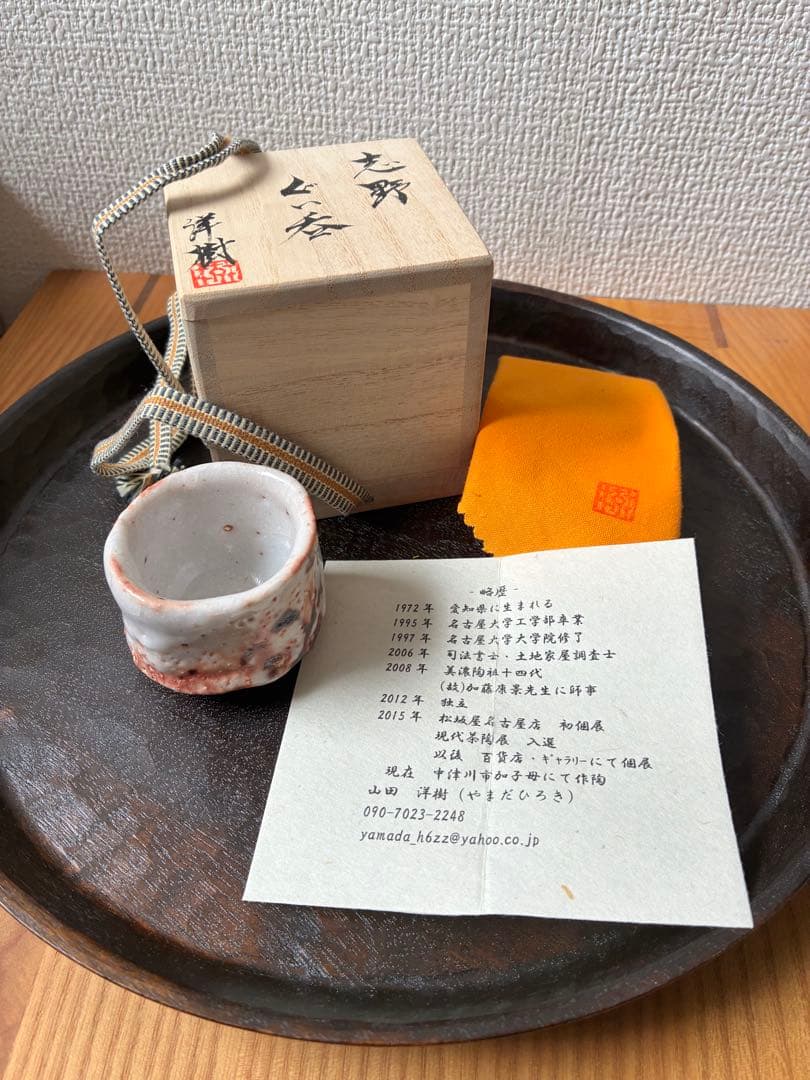 志野
ぐい呑
洋樹
-略歴-
1972年 愛知県に生まれる
1995年 名古屋大学工学部卒業
1997年 名古屋大学大学院修了
2006年 司法書士・土地家屋調査士
2008年 美濃陶祖十四代
(故)加藤康景先生に師事
2012年 独立
2015年 松坂屋名古屋店 初個展
現代茶陶展 入選
以後 百貨店・ギャラリーにて個展
現在 中津川市加子母にて作陶
山田 洋樹 (やまだひろき)
090-7023-2248
yamada_h6zz@yahoo.co.jp